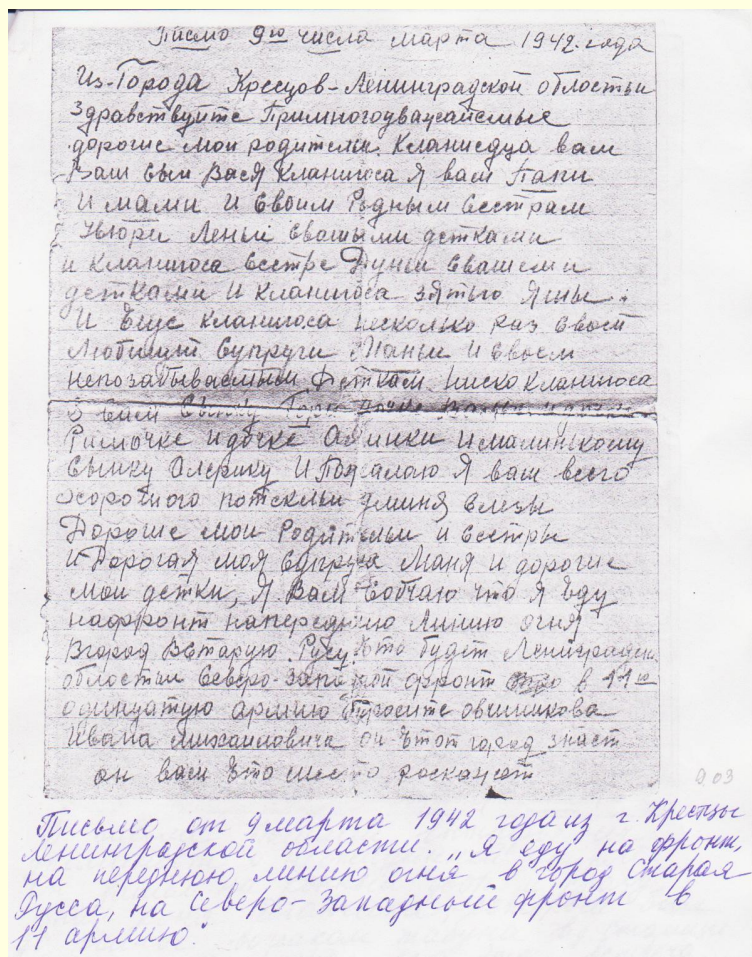 Письмо 9го числа марта 1942 года
Из-Города Кресцов-Ленинградской областьи
Здравствуйте Примногоуважаемые
дорогие мои родители. Кланиедца вам
Ваш сын Вася Кланиюса Я вам Папи
И мами И своим Родным сестрам
Лены свашыми детками
и кланиюса сестре Дуньи свашеми
детками И кланиюса зятью Яшы
И Еще кланиюса несколько раз своей
Любимуй супруги Маньи И своем
непозабываемым Деткам ниско кланиюса
сынку дочке
Римочке и дочке и малинькому
сынку Валерику И Пожалаю Я ваш всего
хорошого
Дорогие мои Родительи и сестры
И Дорогая моя супруга Маня и дорогие
мои детки, Я Вам собчаю что Я Еду
нафронт напереднию линию огня
Вгород Встарую Русу Ето будет Ленинградск
областьи Северо-Западной фронт в 11ю
одинцатую армию Просите овчиникова
Ивана Михаиловича он Етот город знает
он вам Ето место роскажет
9.03
Письмо от 9 марта 1942 года из г. Крестцы
Ленинградской области. „Я еду на фронт,
на переднюю линию огня в город Старая
Русса, на Северо-Западный фронт в
11 армию."